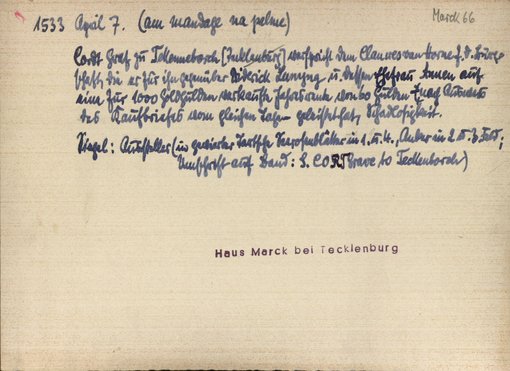 1533 April 7. (am mandage na palme)
Marck 66
Cordt Graf zu Teckenneborch [Tecklenburg] verspricht dem Clauwes van Horne f. d. Bürg-
schaft, die er für ihn gegenüber Diderich und dessen Ehefrau Annen auf
eine für 1000 Goldgulden verkaufte Jahresrente von 60 Gulden
des Kaufbriefes vom gleichen geleistet hat, Schadlosigkeit.
Siegel: Aussteller (in gevierter Tartsche Seerosenblätter in 1. u. 4., Anker in 2. u. 3. Feld;
Umschrift auf Band: S. CORT Grave to Teckenborch)
Haus Marck bei Tecklenburg